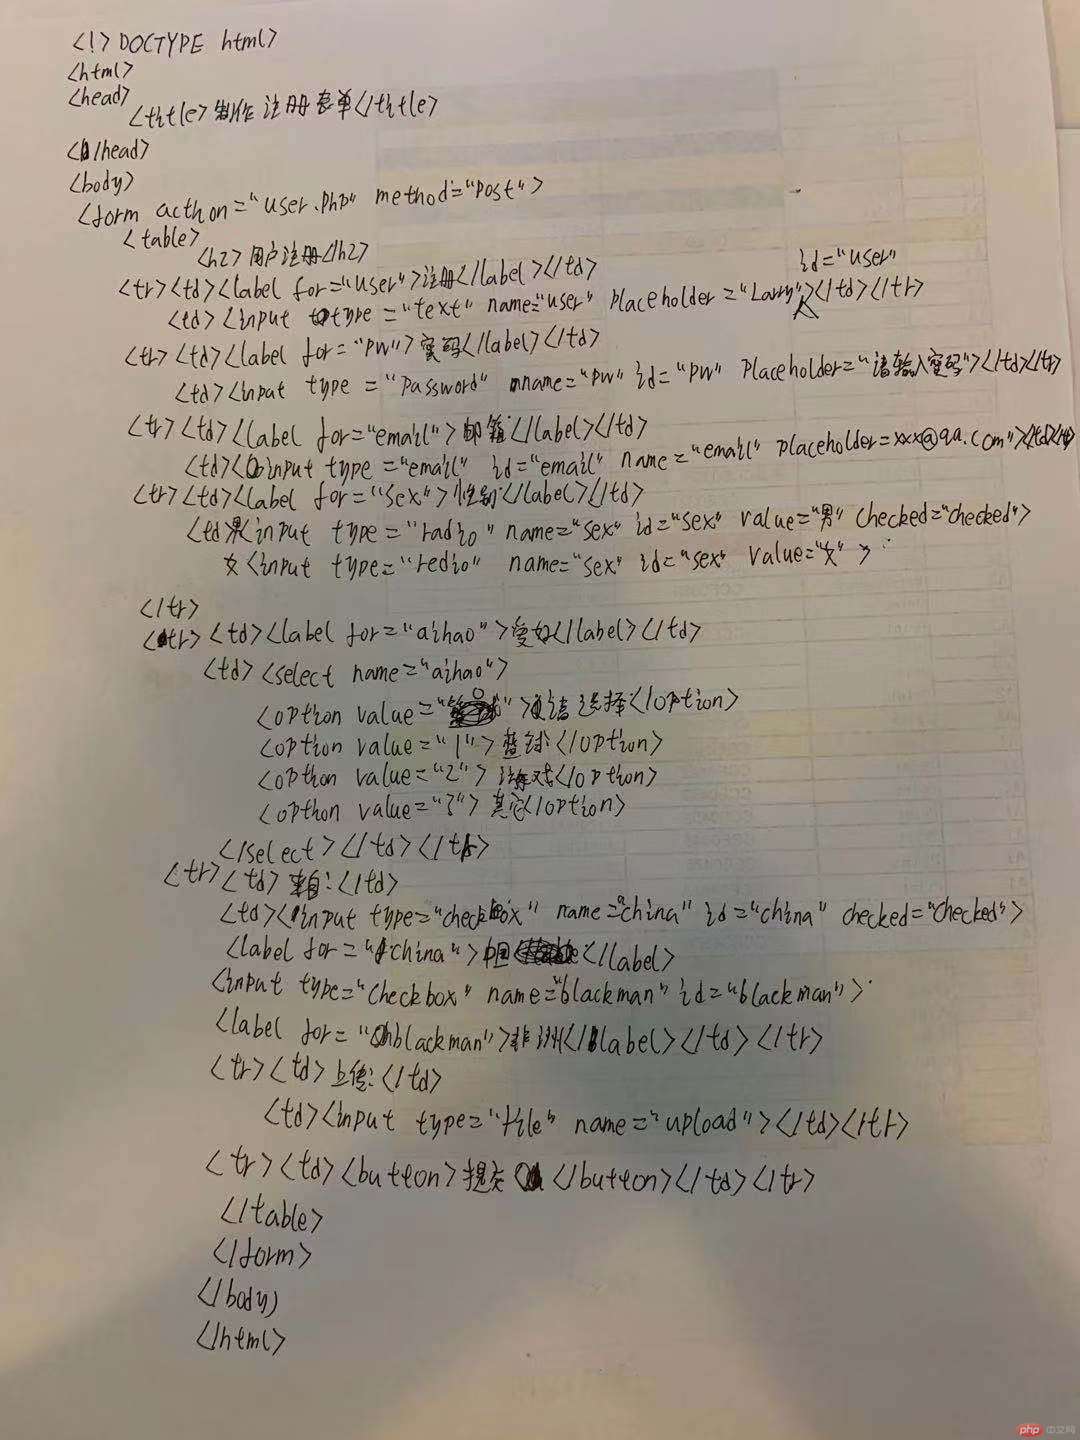 <!>DOCTYPE html>
<html>
<head>
<thtle>制作注册表单</thtle>
</head>
<body>
<form acthon="user.php" method="post">
<table>
<h2>用户注册</h2>
id="user"
<tr><td><label for="user">注册</label></td>
<td><input type="text" name="user" placeholder="Larry"></td></tr>
<tr><td><label for="pw">密码</label></td>
<td><input type="password" name="pw" id="pw" placeholder="请输入密码"></td></tr>
<tr><td><label for="email">邮箱:</label></td>
<td><input type="email" id="email" name="email" placeholder=xxx@qq.com"></td></tr>
<tr><td><label for="sex">性别:</label></td>
<td男<input type="radio" name="sex" id="sex" value="男" checked="checked">
女<input type="redio" name="sex" id="sex" value="女">
</tr>
<tr><td><label for="aihao">爱好</label></td>
<td><select name="aihao">
<option value="0">请选择</option>
<option value="1">篮球</option>
<option value="2">游戏</option>
<opthon value="3">其它</option>
</select></td></tr>
<tr><td>来自:</td>
<td><input type="checkbox" name="china" id="china" checked="checked">
<label for="china">中国</label>
<input type="checkbox" name="blackman" id="blackman">
<label for="blackman">非洲</label></td></tr>
<tr><td>上传:</td>
<td><input type="file" name="upload"></td></tr>
<tr><td><button>提交</button></td></tr>
</table>
</form>
</body>
</html>
php 中文网